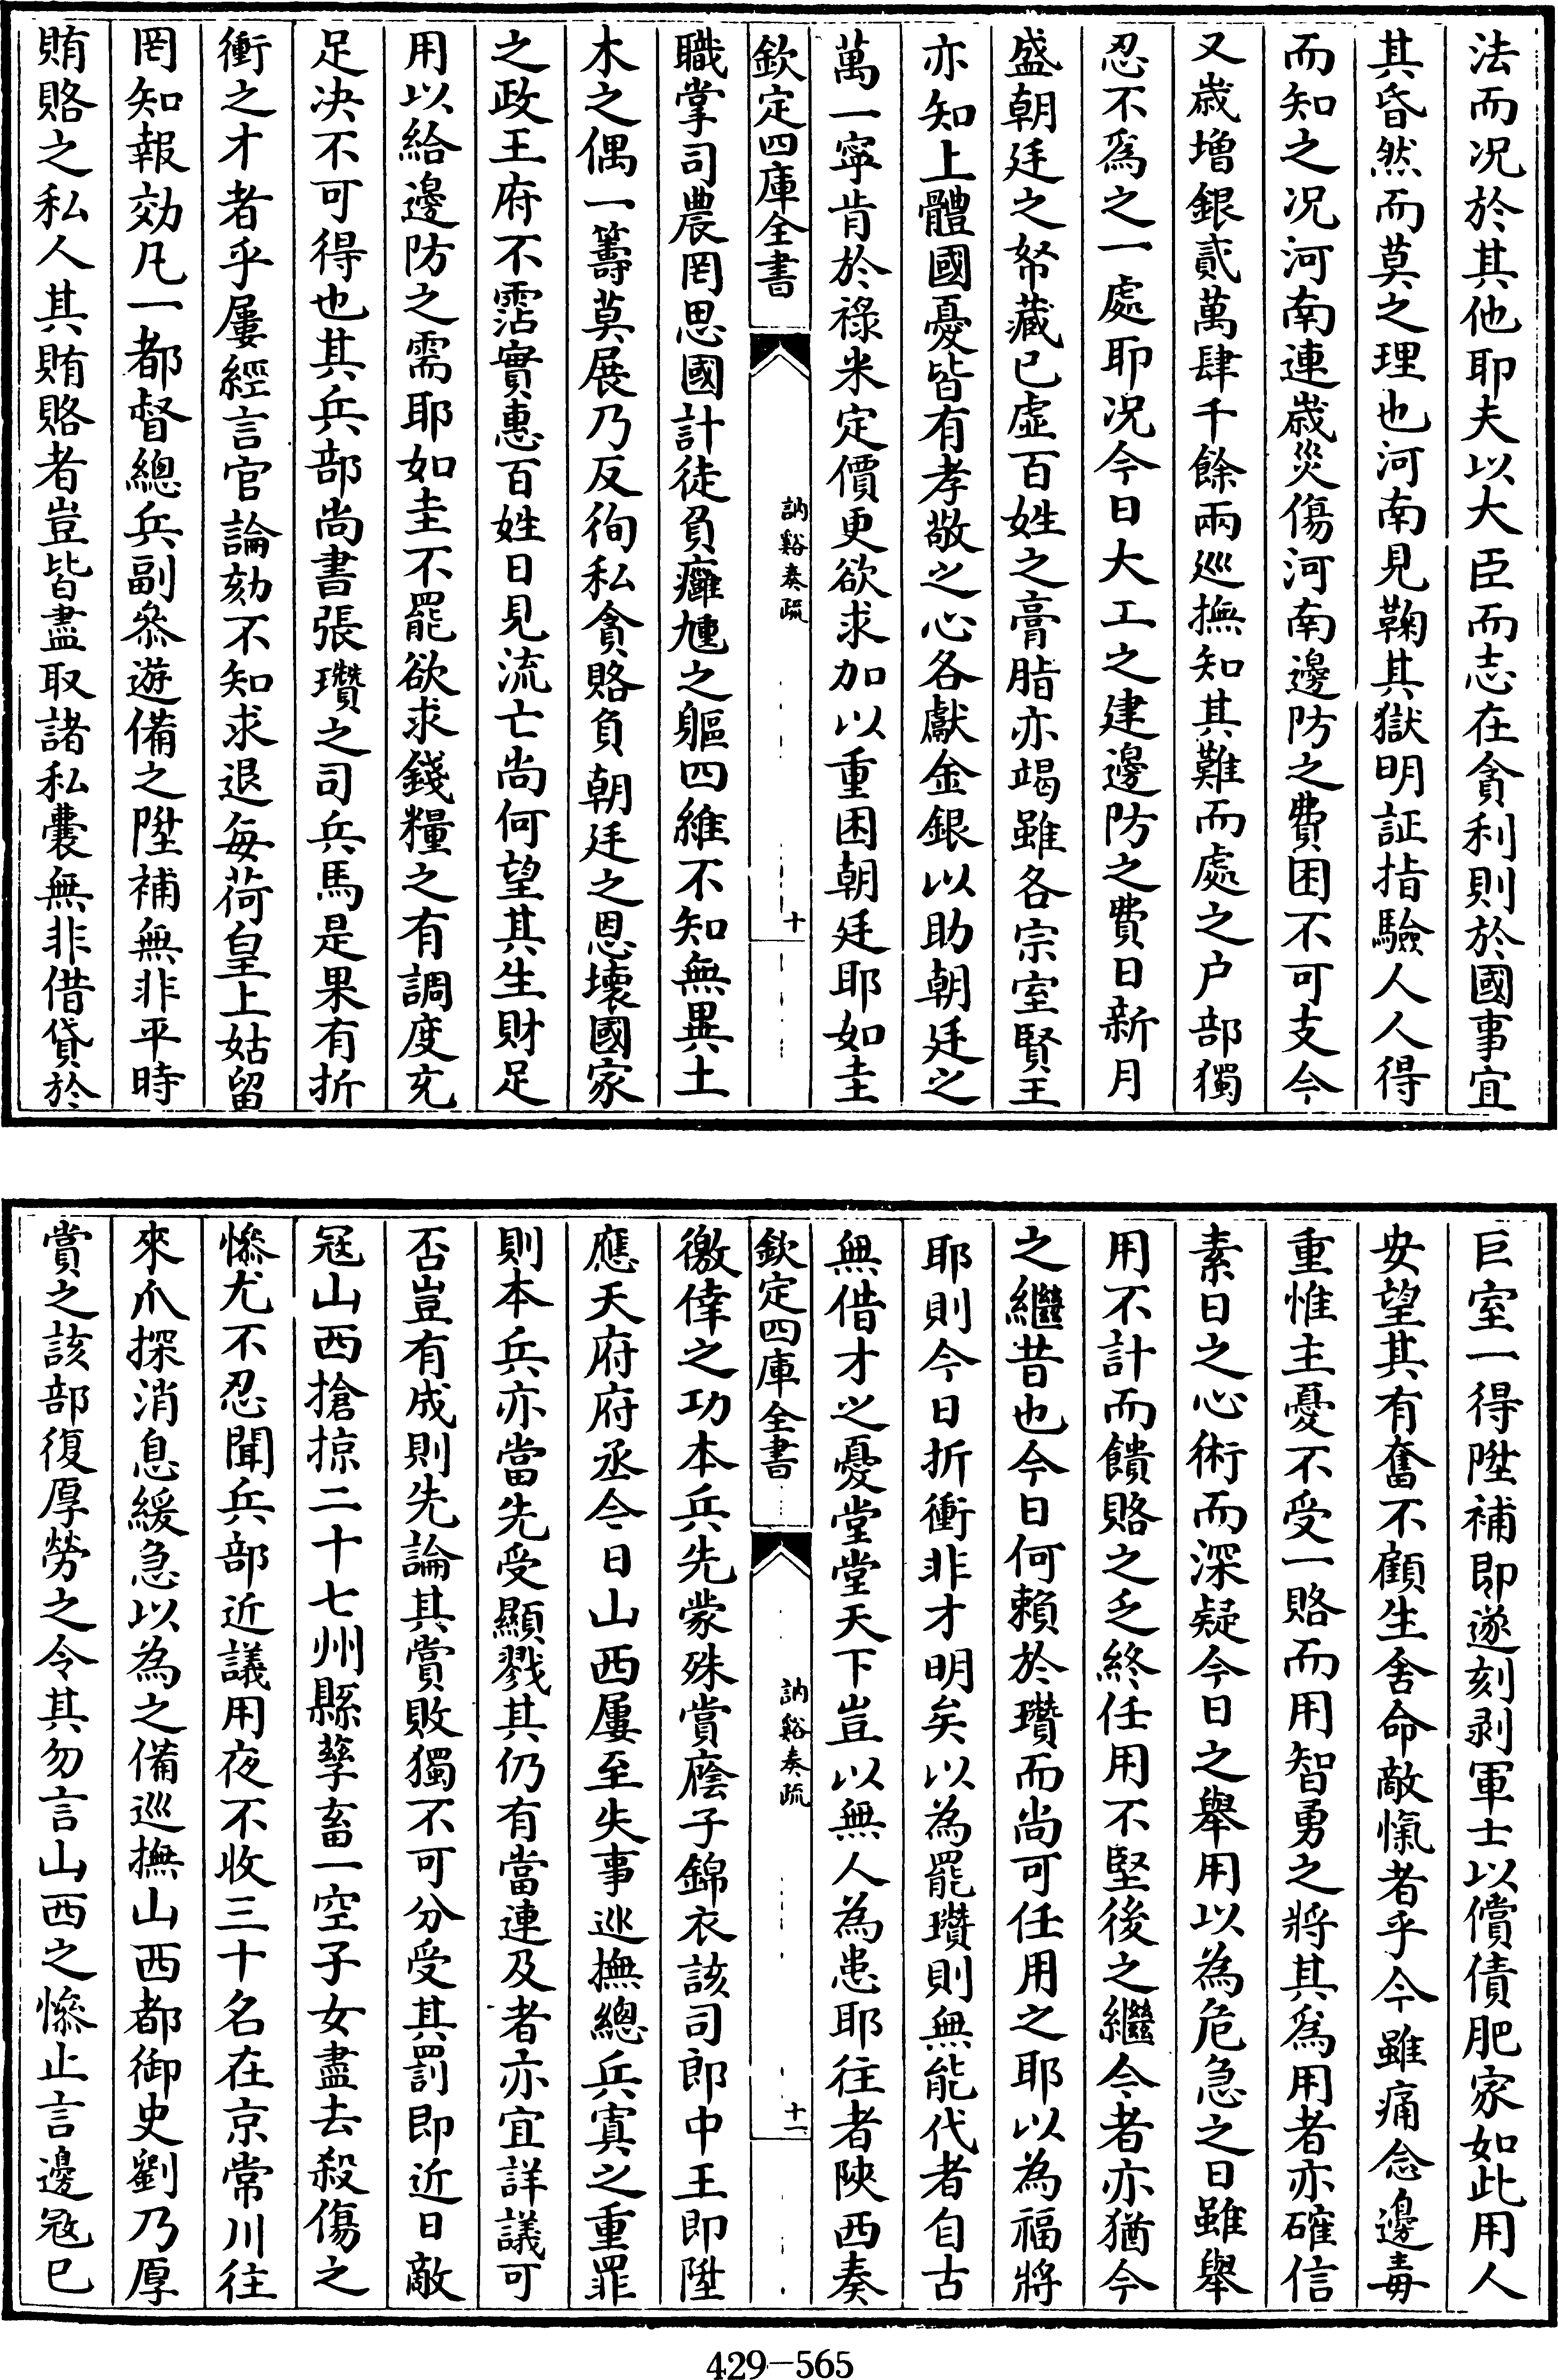 法而况於其他耶夫以大臣而志在貪利則於國事宜
其昏然而莫之理也河南見鞠其獄明証指驗人人得
而知之况河南連歲災傷河南邊防之費困不可支今
又歲增銀貳萬肆千餘兩巡撫知其難而處之户部獨
忍不爲之一處耶况今日大工之建邊防之費日新月
盛朝廷之帑藏已虛百姓之膏脂亦竭雖各宗室賢王
亦知上體國憂皆有孝敬之心各獻金銀以助朝廷之
萬一寧肯於祿米定價更欲求加以重困朝廷耶如圭
欽定四庫全書
訥谿奏疏
十
職掌司農罔思國計徒負癰尰之軀四維不知無異土
木之偶一籌莫展乃反徇私貪賂負朝廷之恩壞國家
之政王府不霑實惠百姓日見流亡尚何望其生財足
用以給邊防之需耶如圭不罷欲求錢糧之有調度充
足决不可得也其兵部尚書張瓚之司兵馬是果有折
衝之才者乎屢經言官論劾不知求退每荷皇上姑留
罔知報効凡一都督總兵副叅遊備之陞補無非平時
賄賂之私人其賄賂者豈皆盡取諸私囊無非借貸於
巨室一得陞補即遂刻剥軍士以償債肥家如此用人
安望其有奮不顧生舍命敵愾者乎今雖痛念邊毒
重惟主憂不受一賂而用智勇之將其爲用者亦確信
素日之心術而深疑今日之舉用以為危急之日雖舉
用不計而饋賂之乏終任用不堅後之繼今者亦猶今
之繼昔也今日何賴於瓚而尚可任用之耶以為福將
耶則今日折衝非才明矣以為罷瓚則無能代者自古
無借才之憂堂堂天下豈以無人為患耶往者陝西奏
欽定四庫全書
訥谿奏疏
十一
徼倖之功本兵先蒙殊賞廕子錦衣該司郎中王即陞
應天府府丞今日山西屢至失事巡撫總兵寘之重罪
則本兵亦當先受顯戮其仍有當連及者亦宜詳議可
否豈有成則先論其賞敗獨不可分受其罰即近日敵
冦山西搶掠二十七州縣孳畜一空子女盡去殺傷之
慘尤不忍聞兵部近議用夜不收三十名在京常川往
來爪探消息緩急以為之備巡撫山西都御史劉乃厚
賞之該部復厚勞之令其勿言山西之慘止言邊冦已
429-565